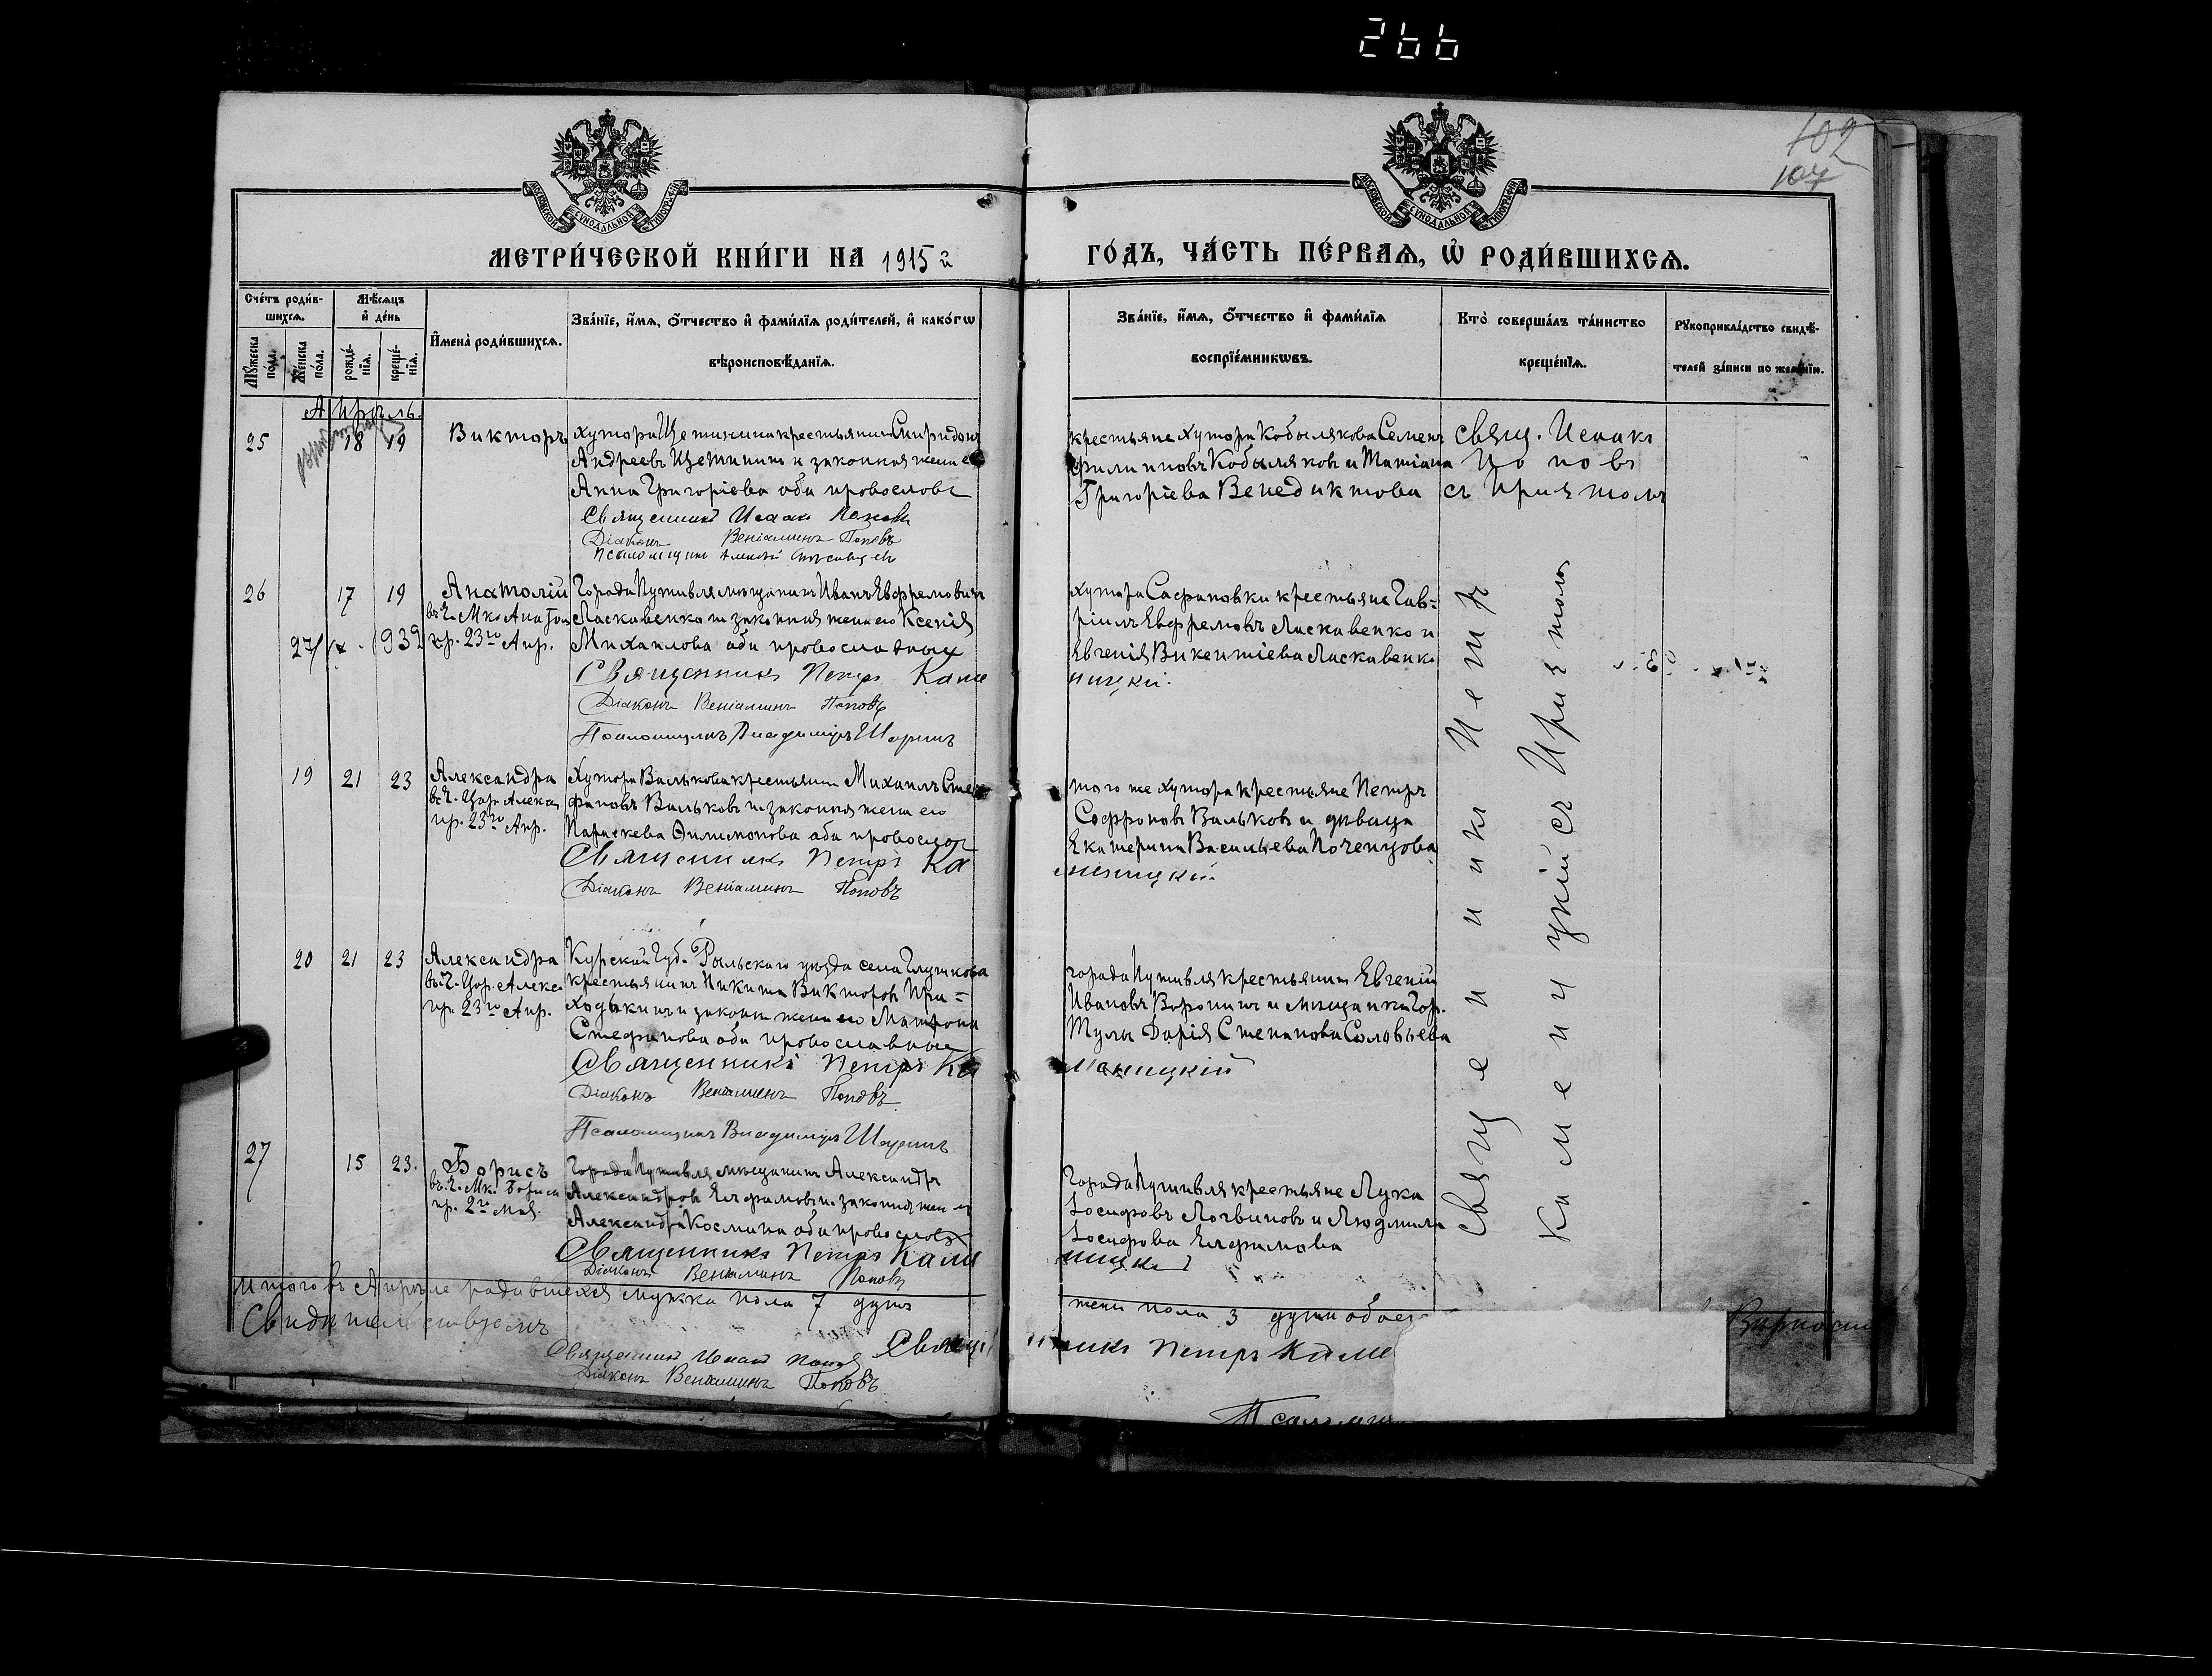 266
102
107
МОСКОВСКОЙ СѴНОДАЛЬНОЙ ТИПОГРАФІИ
МОСКОВСКОЙ СѴНОДАЛЬНОЙ ТИПОГРАФІИ
МЕТРИ́ЧЕСКОЙ КНИ́ГИ НА 1915 й
ГО́ДЪ, ЧА́СТЬ ПЕ́РВАѦ, Ѡ҆ РОДИ́ВШИХСѦ.
Сче́тъ роди́в-
шихсѧ.
Мѣ́сѧцъ
и҆ де́нь
Мꙋ́жеска
по́ла.
Же́нска
по́ла.
рожде́-
нїѧ.
креще́-
нїѧ.
И҆мена̀ роди́вшихсѧ.
Зва́нїе, и҆́мѧ, ѻ҆́тчество и҆ фами́лїѧ роди́телей, и҆ како́гѡ
вѣроисповѣ́данїѧ.
Зва́нїе, и҆́мѧ, ѻ҆́тчество и҆ фами́лїѧ
воспрїе́мникѡвъ.
Кто̀ соверша́лъ та́инство
креще́нїѧ.
Рꙋкоприкла́дство свидѣ́-
телей за́писи по жела́нїю.
Апрѣль.
25 18 19 Викторъ
хутора Щетинина крестьянинъ Спиридонъ
Андреевъ Щетининъ и законная жена его
Анна Григоріева оба православ
Священникъ Исаакъ Поповъ
Діаконъ Веніаминъ Поповъ
крестьяне хутора Кобылякова Семенъ
Филипповъ Кобыляковъ и Татіана
Григоріева Венедиктова
Свящ. Исаакъ
Поповъ
съ Причтомъ
26 17 19 Анатолій
въ ч. Мк. Анатол
пр. 23го Апр.
27/ix - 1939
Города Путивля мѣщанинъ Иванъ Евфремовичъ
Ласкавенко и законная жена его Ксенія
Михаилова оба православные
Священникъ Петръ Каме
Діаконъ Веніаминъ Поповъ
Псаломщикъ Владиміръ Шаринъ
хутора Сафоновки крестьяне Гав=
ріилъ Евфремовъ Ласкавенко и
Евгенія Викентіева Ласкавенко
ницкій.
19 21 23 Александра
въ ч. Цар. Алекса
пр. 23го Апр.
Хутора Валькова крестьянинъ Михаилъ Сте
фановъ Вальковъ и законная жена его
Параскева Филимонова оба православ
Священникъ Петръ Ка
Діаконъ Веніаминъ Поповъ
того же хутора крестьяне Петръ
Софроновъ Вальковъ и дѣвица
Екатерина Васильева Поченцова
меницкій
20 21 23 Александра
въ ч. Цар. Алекс
пр. 23го Апр.
Курской Губ. Рыльскаго уѣзда села Глушкова
крестьянинъ Никита Викторовъ При=
ходькинъ и законная жена его Матрона
Стефанова оба православные
Священникъ Петръ Ка
Діаконъ Веніаминъ Поповъ
Псаломщикъ Владиміръ Шаринъ
города Путивля крестьянинъ Евгеній
Ивановъ Воронинъ и мѣщанка гор.
Тулы Дарія Степанова Соловьева
меницкій
27 15 23. Борисъ
въ ч. Мк. Бориса
пр. 2го Мая.
Города Путивля мѣщанинъ Александръ
Александровъ Елфимовъ и законная жена его
Александра Космина оба православ
Священникъ Петръ Каме
Діаконъ Веніаминъ Поповъ
Города Путивля крестьяне Лука
Іосифовъ Логвиновъ и Людмила
Іосифова Елфимова
ницкій
Священникъ Петръ
Каменицкій съ Причтомъ
Итого въ Апрѣлѣ родившихся мужска пола 7 душъ
жен пола 3 души обоег
Свидѣтельствуемъ
Священникъ Петръ Каме
Священникъ Исаакъ Поповъ
Діаконъ Веніаминъ Поповъ
Псаломщ